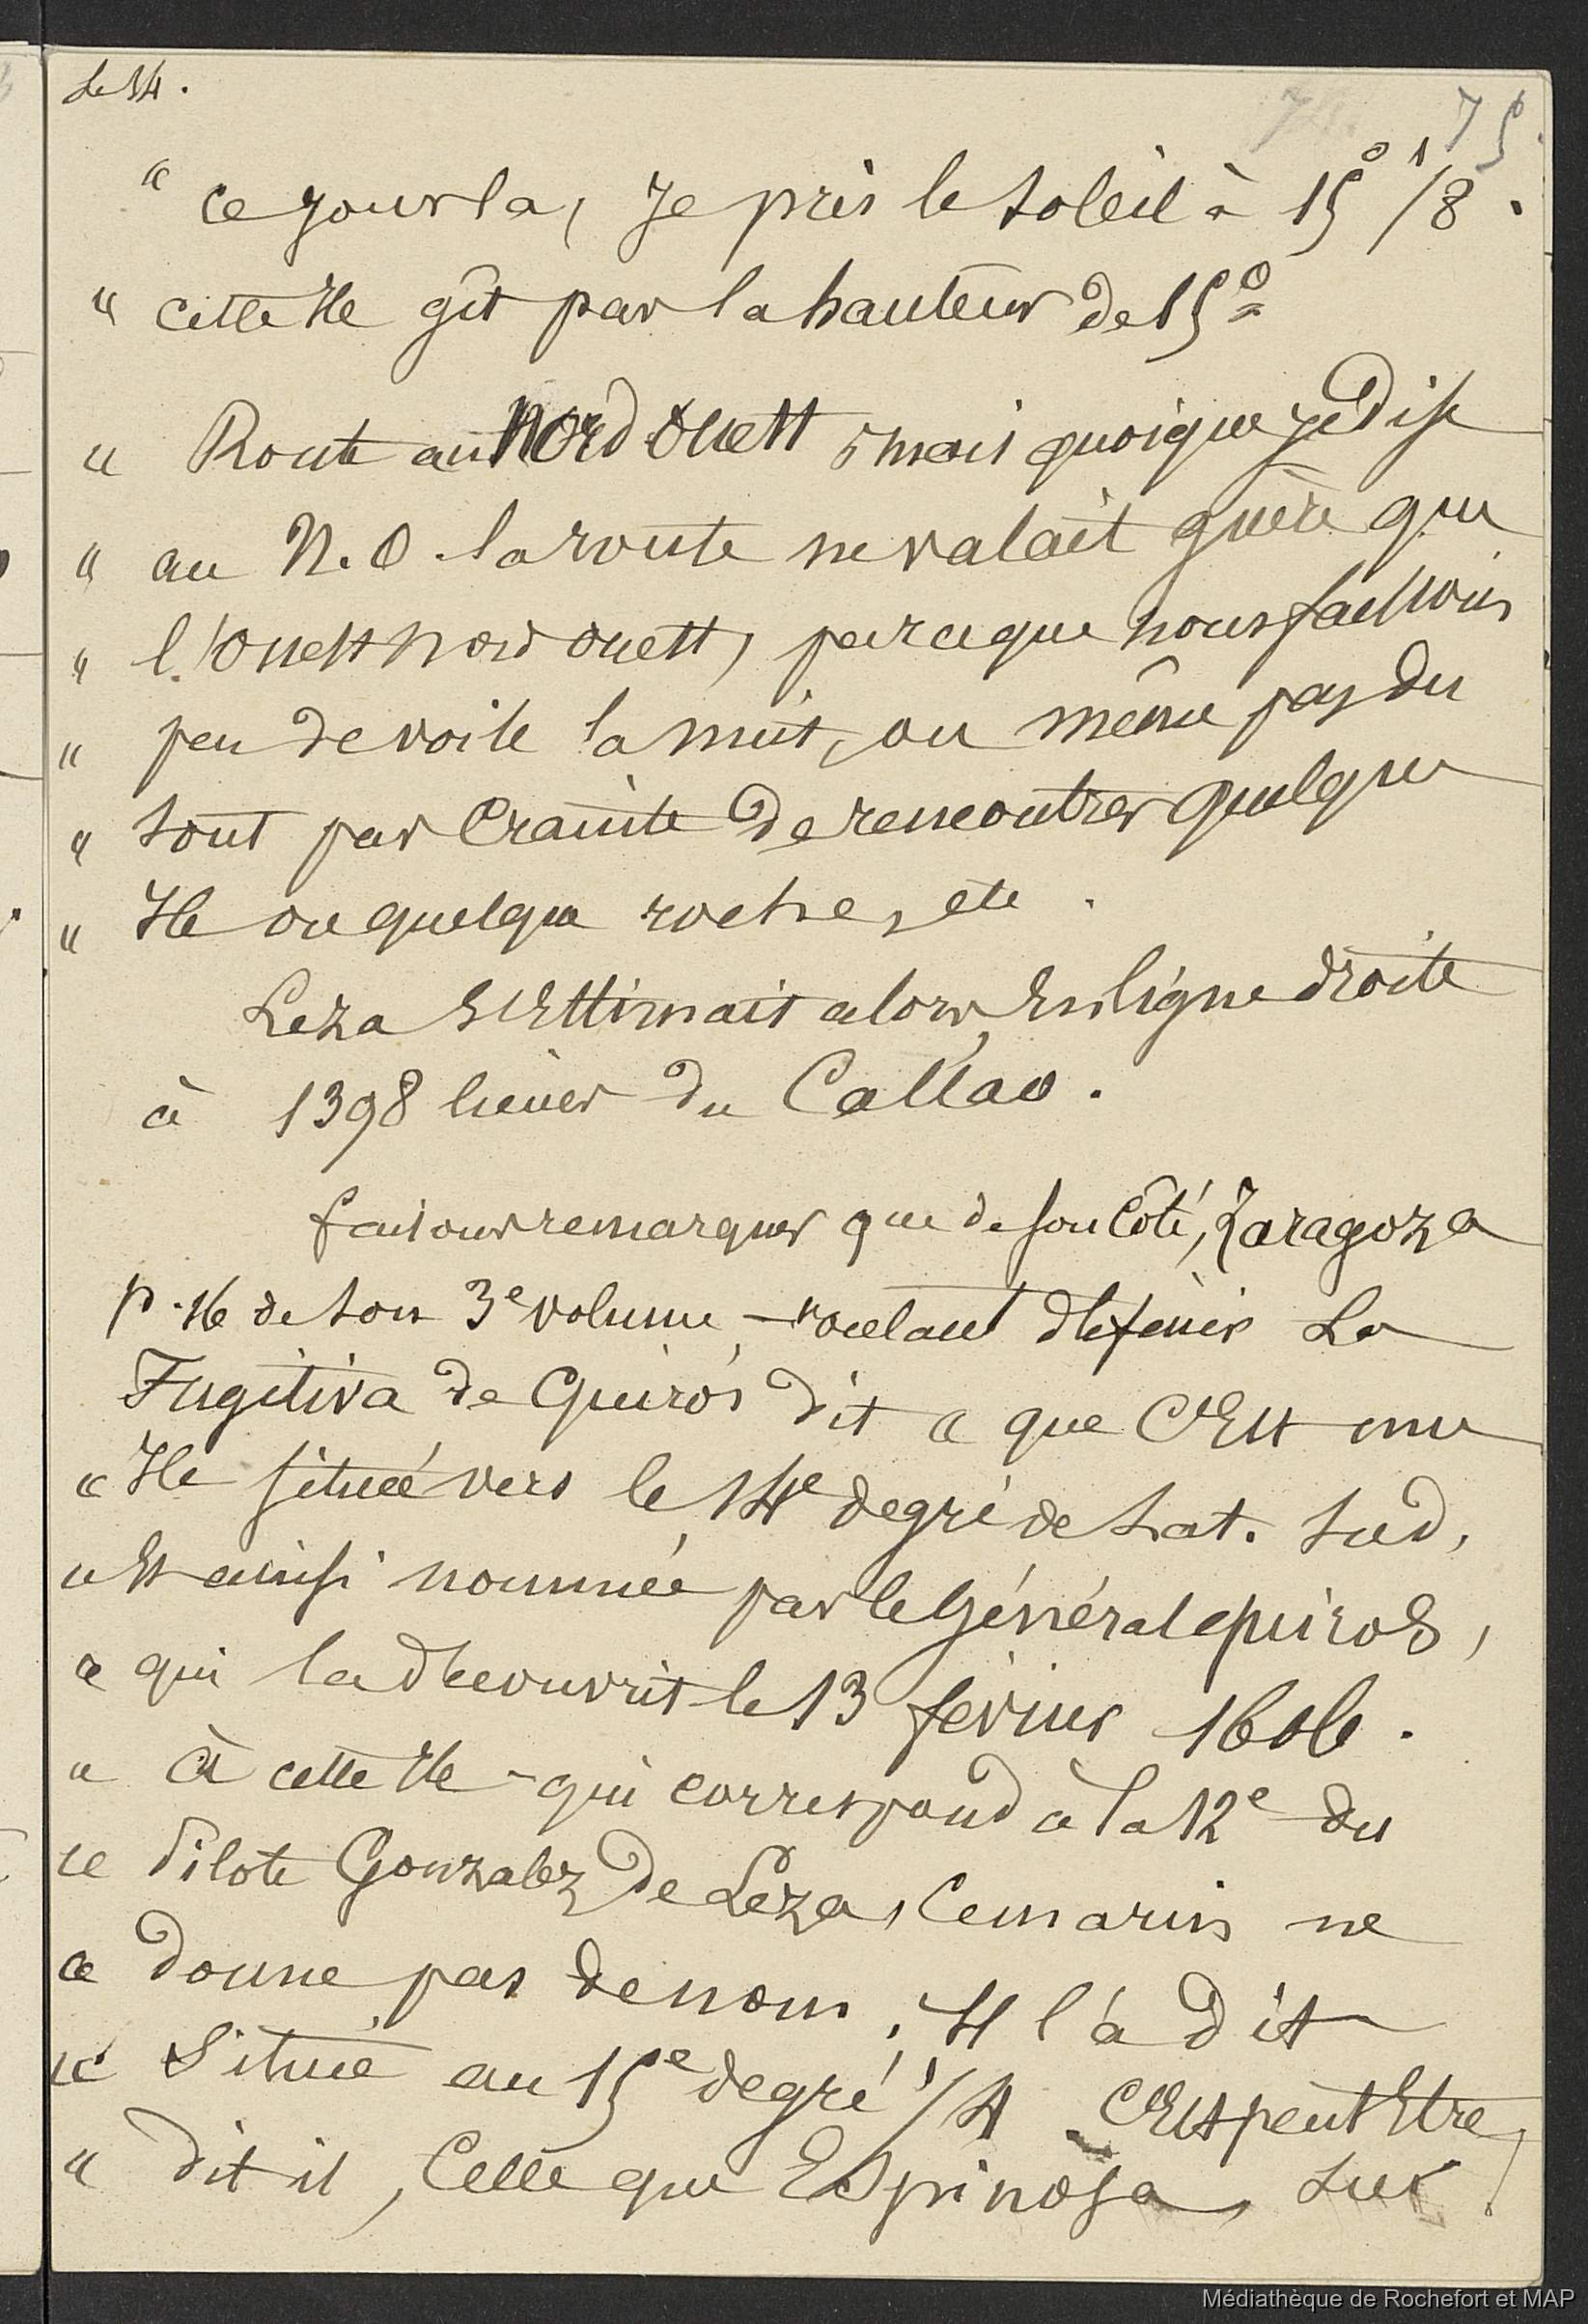 Le 14.
75
" ce jour la, Je pris le soleil à 15° 1/8.
" cette Ile gît par la hauteur de 15°
" Route au Nord Ouest mais quoique je dise
" au N. O. la route ne valait guère que
" l'Ouest nord ouest, parceque nous faisions
" peu de voile la nuit, ou même pas du
" tout par crainte de rencontrer quelque
" Ile ou quelque roche, etc.
Leza s'Estimait alors, En ligne droite
à 1398 lieues du Callao.
faisons remarquer que de son côté, Zaragoza
p. 16 de son 3e volume, - voulant définir La
Fugitiva de Quirós dit " que C'Est une
" Ile située vers le 14e degré de Lat. Sud,
" Est ainsi nommée par le Général Quiros,
" qui la découvrit le 13 février 1606.
" à cette Ile - qui correspond à la 12e du
" Pilote Gonzalez de Leza, Ce marin ne
" donne pas de nom; Il l'a dit
" Située au 15e degré 1/4. C'Est peut Etre,
" dit il, Celle que Espinosa, sur
Médiathèque de Rochefort et MAP